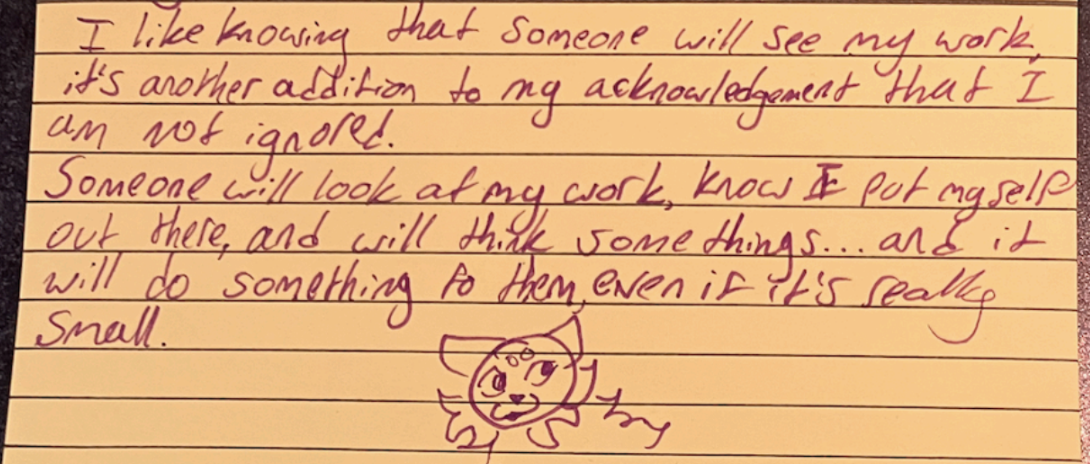 I like knowing that someone will see my work,
it's another addition to my acknowledgement that I
am not ignored.
Someone will look at my work, know I put myself
out there, and will think some things... and it
will do something to them, even if it's really
small.